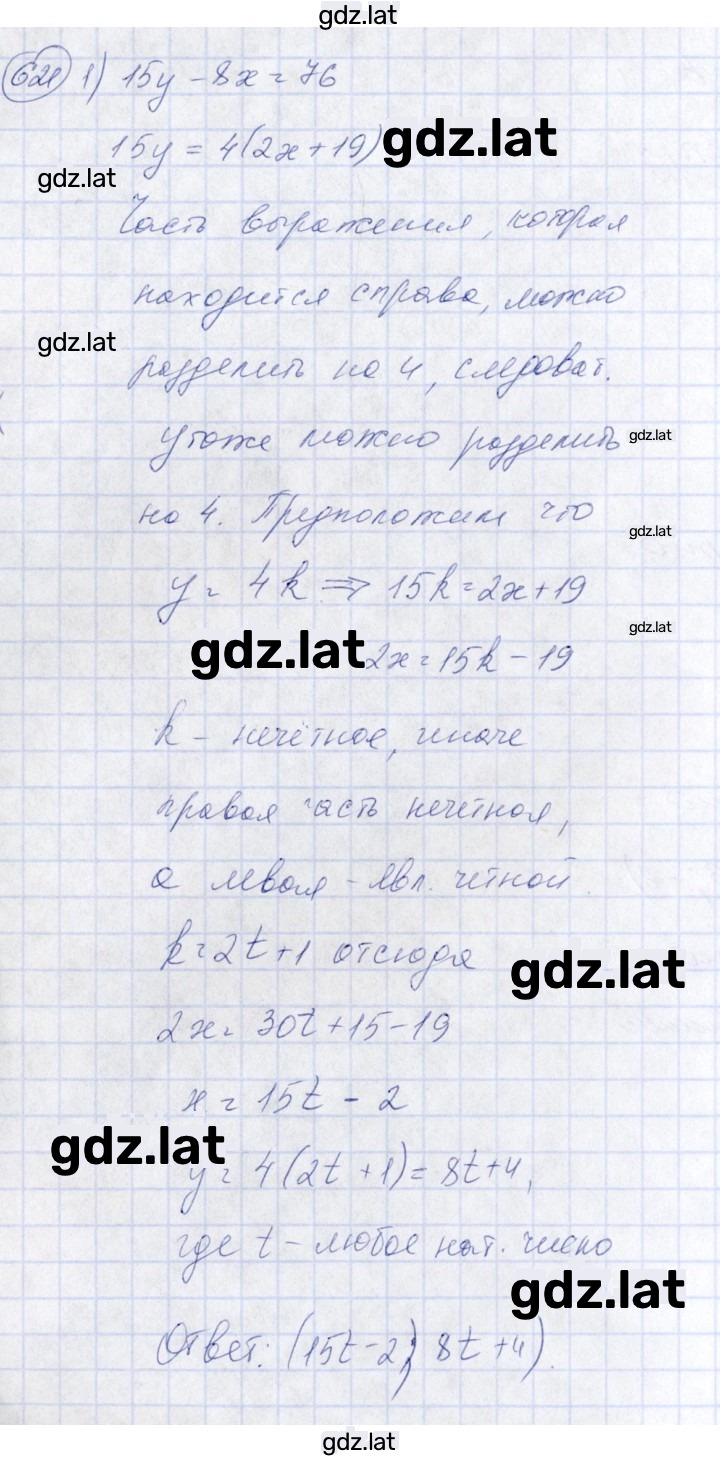 gdz.lat
621 1) 15y - 8x = 76
15y = 4(2x + 19) gdz.lat
gdz.lat
Часть выражения, которая
находится справа, можно
gdz.lat
разделить на 4, следоват.
y тоже можно разделить gdz.lat
на 4. Предположим что
gdz.lat
y = 4k ⇒ 15k = 2x + 19
gdz.lat
gdz.lat 2x = 15k - 19
k - нечётное, иначе
правая часть нечетная,
а левая - явл. четной.
k = 2t + 1 отсюда gdz.lat
2x = 30t + 15 - 19
x = 15t - 2
gdz.lat
y = 4(2t + 1) = 8t + 4,
где t - любое нат. число
gdz.lat
Ответ: (15t - 2; 8t + 4).
gdz.lat